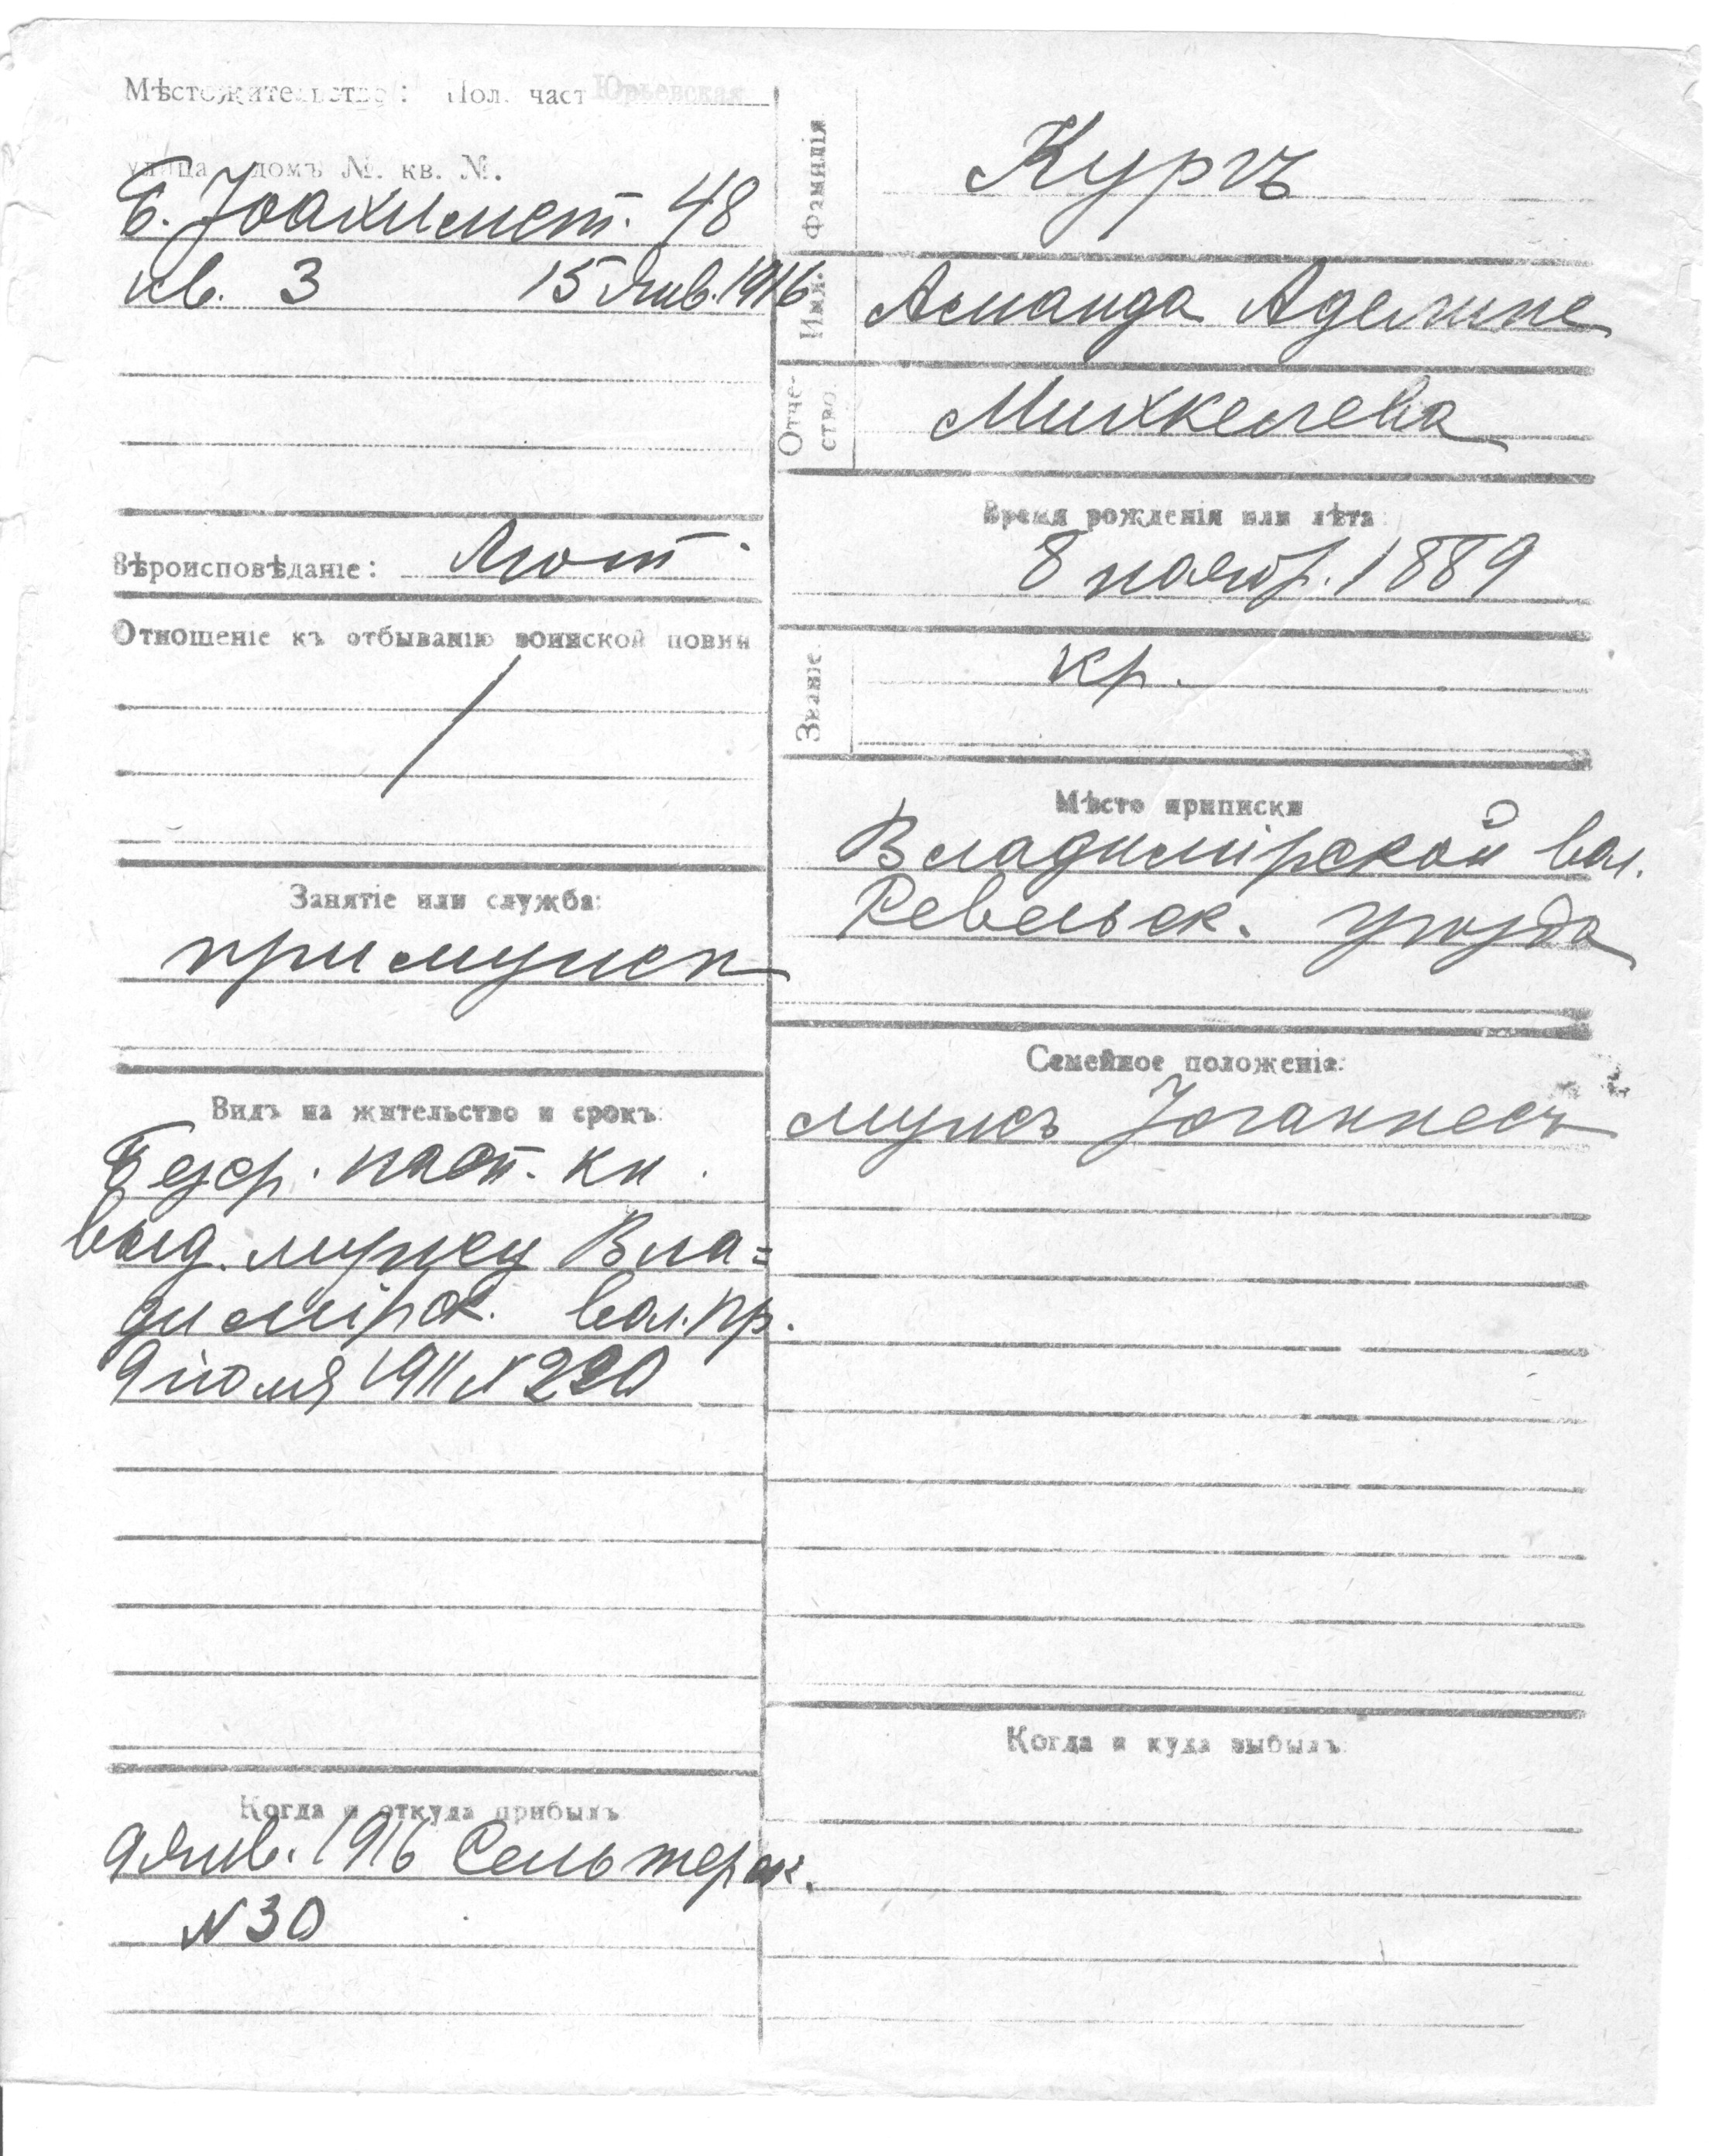 Мѣстожительство: Пол. част Юрьевская
улица домъ №. кв. №.
Б. Іоахимст. 48
кв. 3 15 Янв. 1916
Вѣроисповѣданіе: Лют.
Отношеніе къ отбыванію воинской повин
Занятіе или служба:
при мужѣ
Видъ на жительство и срокъ:
Безср. пасп. кн.
выд. мужу Вла=
димірск. вол. пр.
9 іюля 1911 N 220
Когда и откуда прибылъ
9 Янв. 1916 Сельтерск.
N 30
Фамилія
Кургъ
Имя.
Аманда Аделине
Отче-
ство.
Михкелева
Время рожденія или лѣта:
8 нояб. 1889
Званіе.
кр.
Мѣсто приписки
Владимірской вол.
Ревельск. уѣзда
Семейное положеніе:
мужъ Іоганнесъ
Когда и куда выбылъ: